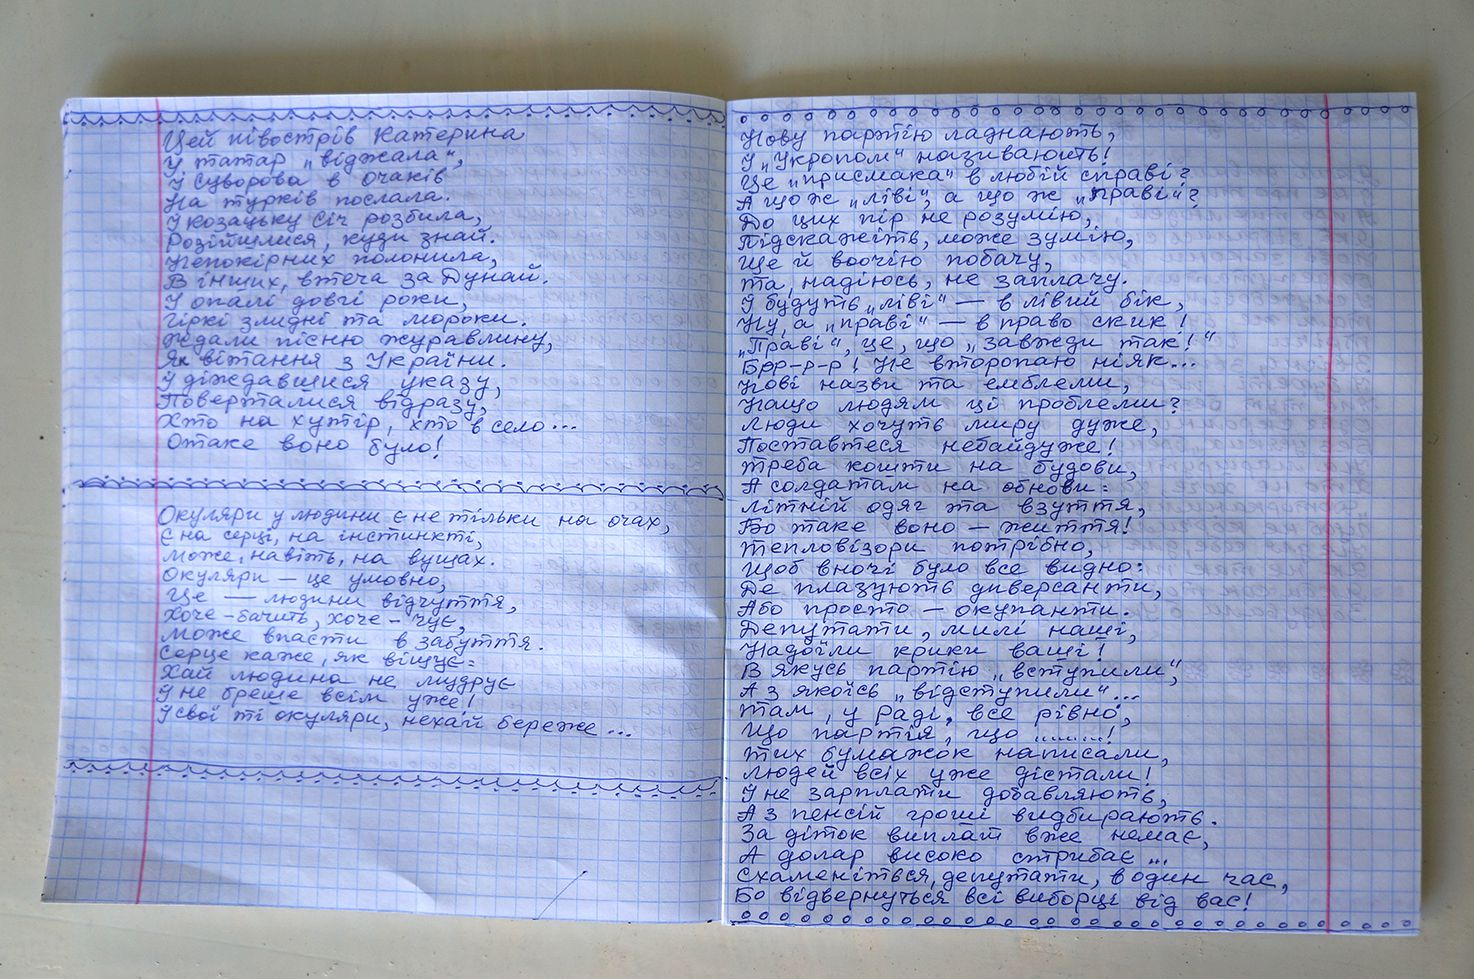 Цей півострів Катерина
У татар „віджала",
І Суворова в Очаків
На турків послала.
І козацьку Січ розбила,
Розійшлися, куди знай.
Непокірних полонила,
В інших, втеча за Дунай.
У опалі довгі роки,
Гіркі злидні та мороки.
Ждали пісню журавлину,
Як вітання з України.
І діждавшися указу,
Поверталися відразу,
Хто на хутір, хто в село...
Отаке воно було!
Окуляри у людини є не тільки на очах,
Є на серці, на інстинкті,
Може, навіть, на вушах.
Окуляри – це умовно,
Це — людини відчуття,
Хоче – бачить, хоче – чує,
Може впасти в забуття.
Серце каже, як віщує:
Хай людина не мудрує
І не бреше всім уже!
І свої ті окуляри, нехай береже...
Нову партію ладнають,
І „Укропом" називають!
Це „присмака" в любій справі?
А що ж „ліві", а що ж „праві"?
До цих пір не розумію,
Підскажіть, може зумію,
Ще й воочію побачу,
Та, надіюсь, не заплачу.
І будуть „ліві" — в лівий бік,
Ну, а „праві" — в право скик!
„Праві", це, що „завжди так!"
Брр-р-р! Не второпаю ніяк...
Нові назви та емблеми,
Нащо людям ці проблеми?
Люди хочуть миру дуже,
Поставтеся небайдуже!
Треба кошти на будови,
А солдатам на обнови:
Літній одяг та взуття,
Бо таке воно – життя!
Тепловізори потрібно,
Щоб вночі було все видно:
Де плазують диверсанти,
Або просто – окупанти.
Депутати, милі наші,
Надоїли крики ваші!
В якусь партію „вступили",
А з якоїсь „відступили"...
Там, у раді, все рівно,
Що партія, що ........!
Тих бумажок написали,
Людей всіх уже дістали!
І не зарплати добавляють,
А з пенсій гроші видбирають.
За діток виплат вже немає,
А долар високо стрибає...
Схаменіться, депутати, в один час,
Бо відвернуться всі виборці від вас!